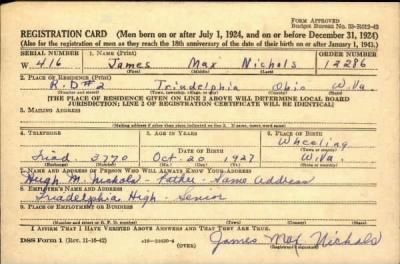 FORM APPROVED
Budget Bureau No. 33-R012-42
REGISTRATION CARD (Men born on or after July 1, 1924, and on or before December 31, 1924)
(Also for the registration of men as they reach the 18th anniversary of the date of their birth on or after January 1, 1943.)
SERIAL NUMBER 1. NAME (Print) ORDER NUMBER
W. 416 James Max Nichols 12286
(First) (Middle) (Last)
2. PLACE OF RESIDENCE (Print)
R.D.#2 Triadelphia Ohio W.Va.
(Number and street) (Town, township, village, or city) (County) (State)
[THE PLACE OF RESIDENCE GIVEN ON LINE 2 ABOVE WILL DETERMINE LOCAL BOARD
JURISDICTION; LINE 2 OF REGISTRATION CERTIFICATE WILL BE IDENTICAL]
3. MAILING ADDRESS
(Mailing address if other than place indicated on line 2. If same, insert word same)
4. TELEPHONE 5. AGE IN YEARS 6. PLACE OF BIRTH
Wheeling
DATE OF BIRTH (Town or county)
Triad. 2770 Oct. 20 1927 W.Va.
(Exchange) (Number) (Mo.) (Day) (Yr.) (State or country)
7. NAME AND ADDRESS OF PERSON WHO WILL ALWAYS KNOW YOUR ADDRESS
Hugh M. Nichols - Father - Same address
8. EMPLOYER'S NAME AND ADDRESS
Triadelphia High - Senior
9. PLACE OF EMPLOYMENT OR BUSINESS
(Number and street or R. F. D. number) (Town) (County) (State)
I AFFIRM THAT I HAVE VERIFIED ABOVE ANSWERS AND THAT THEY ARE TRUE.
DSS Form 1 (Rev. 11-16-42) (OVER) James Max Nichols